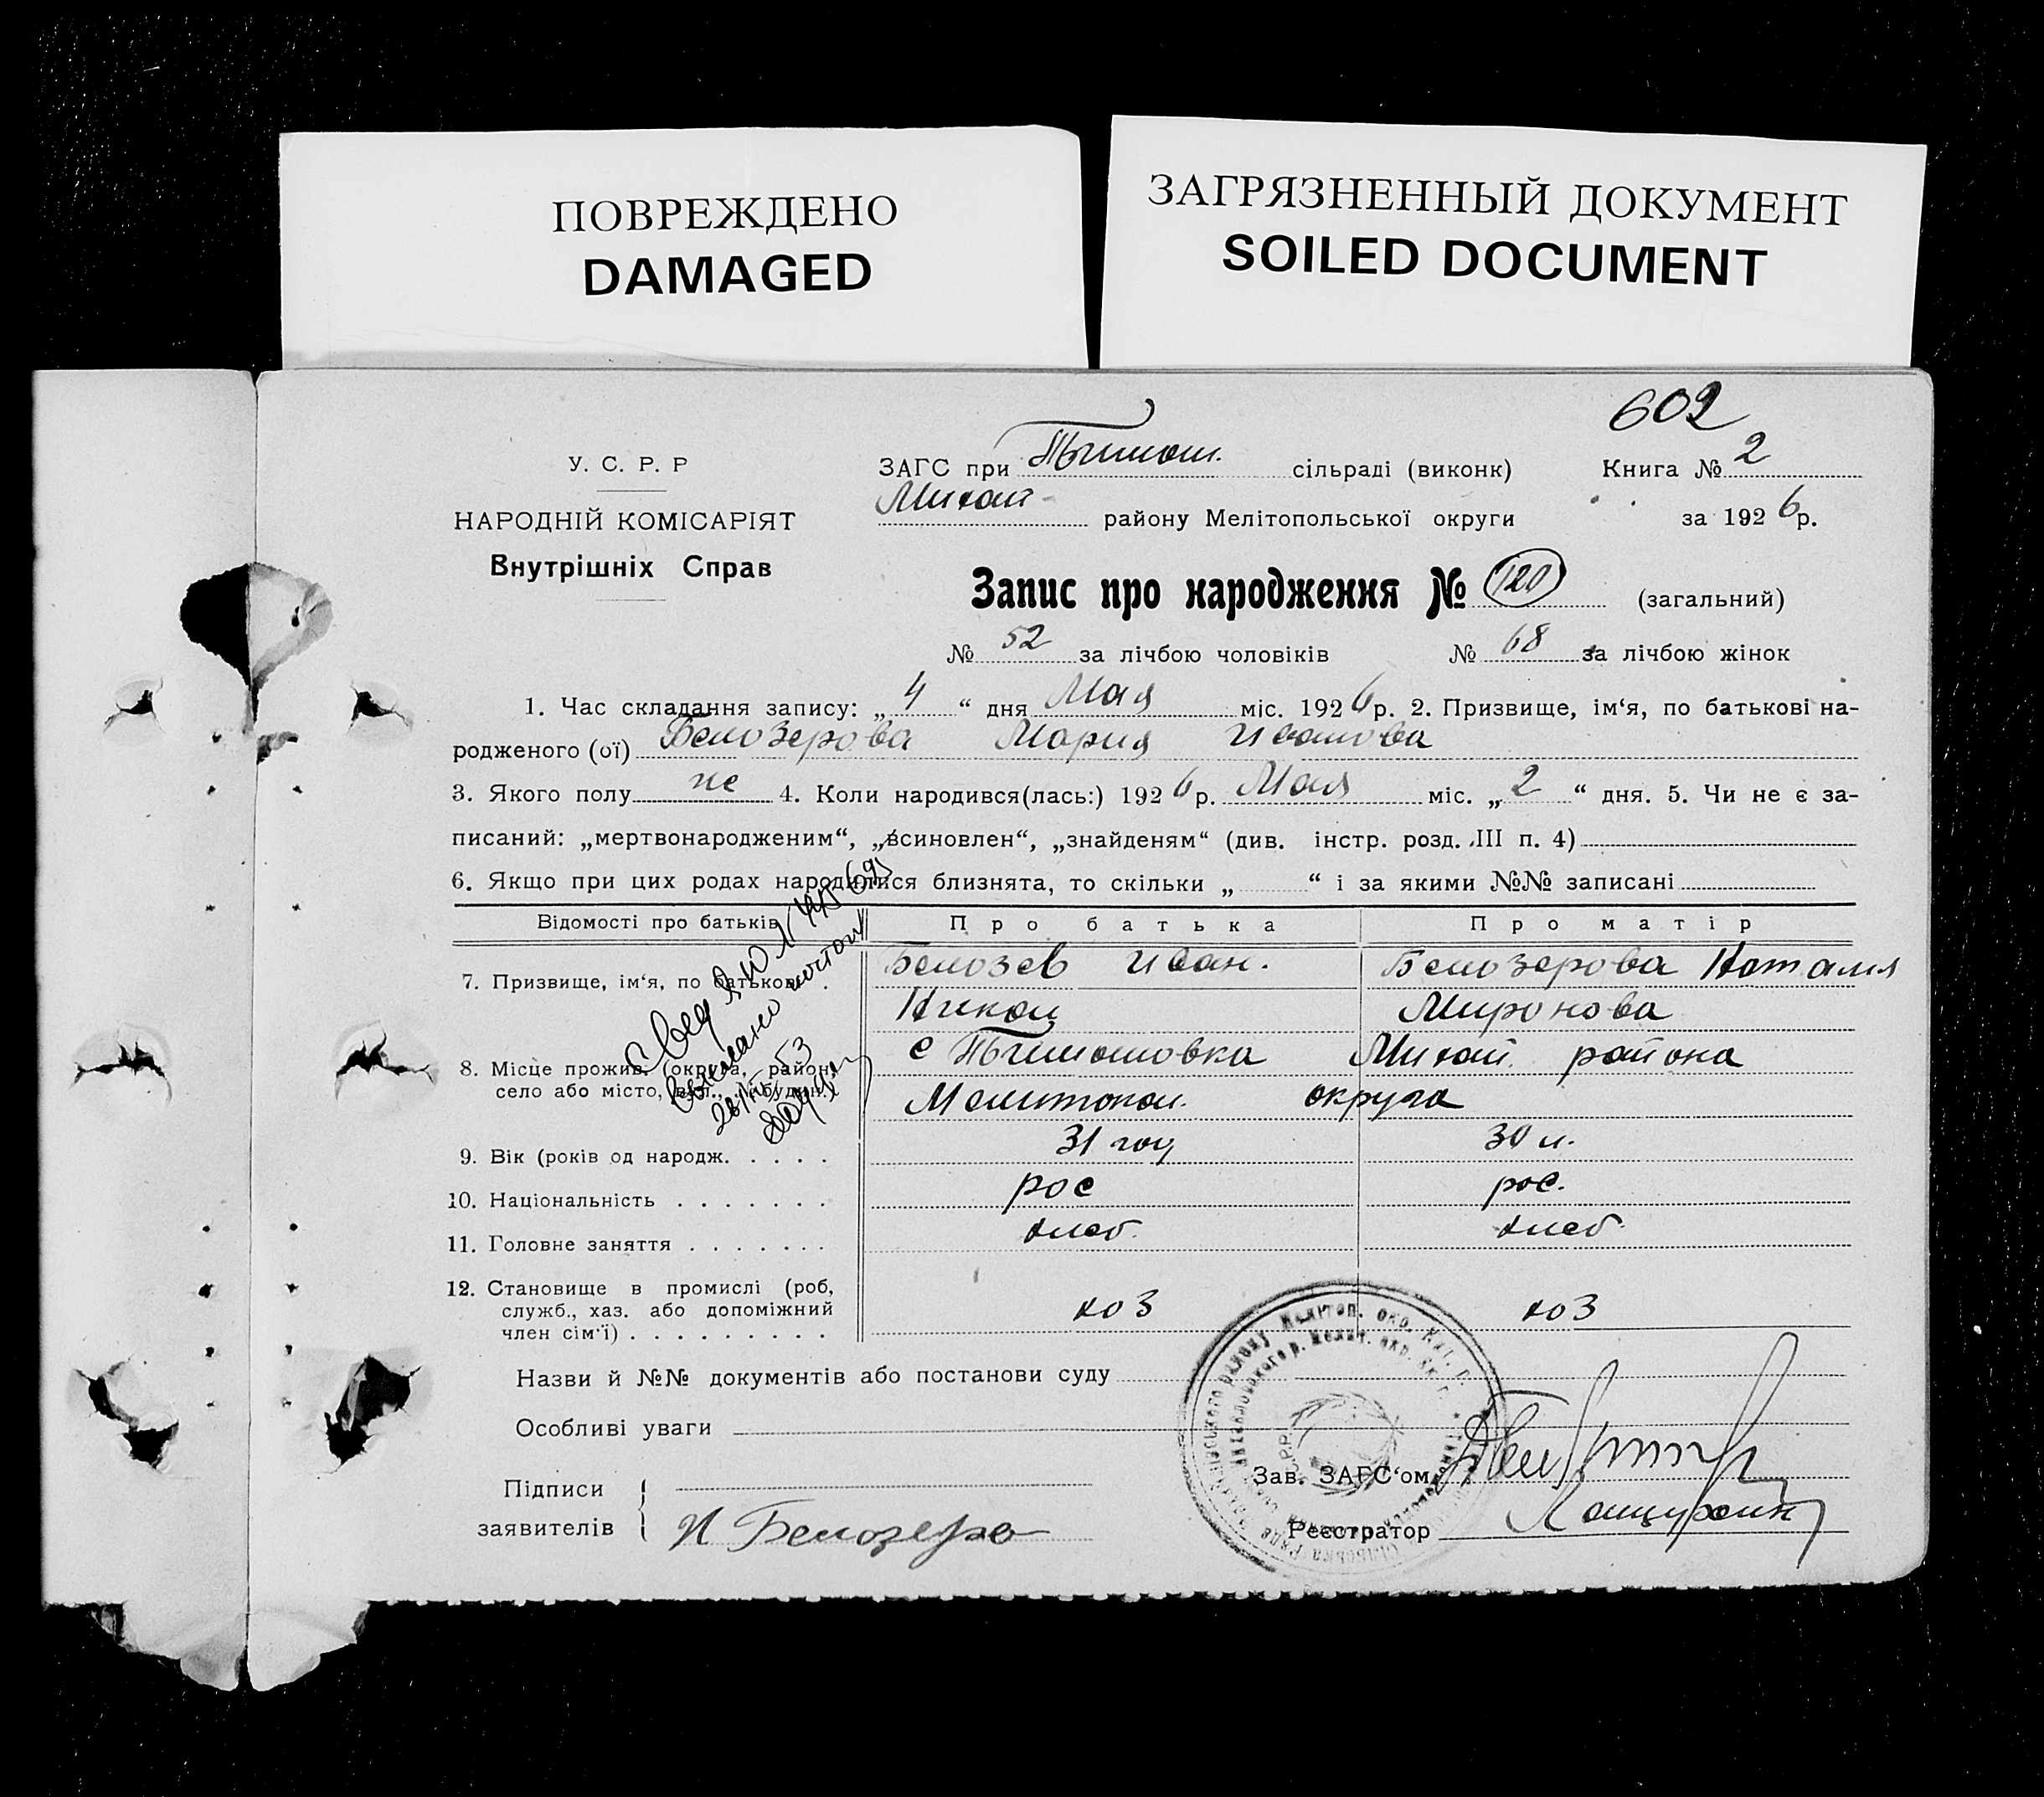 ПОВРЕЖДЕНО
DAMAGED
ЗАГРЯЗНЕННЫЙ ДОКУМЕНТ
SOILED DOCUMENT
602
У. С. Р. Р
НАРОДНІЙ КОМІСАРІЯТ
Внутрішніх Справ
ЗАГС при Тимош. сільраді (виконк) Книга № 2
Михай- району Мелітопольської округи за 1926р.
Запис про народження № 120 (загальний)
№ 52 за лічбою чоловіків № 68 за лічбою жінок
1. Час складання запису: „4“ дня Мая міс. 1926р. 2. Призвище, ім‘я, по батькові на-
родженого (ої) Белозерова Мария Иванова
3. Якого полу же 4. Коли народився(лась:) 1926р. Мая міс. „2“ дня. 5. Чи не є за-
писаний: „мертвонародженим“, „всиновлен“, „знайденям“ (див. інстр. розд. III п. 4)
6. Якщо при цих родах народилися близнята, то скільки „ “ і за якими №№ записані
Відомості про батьків Про батька Про матір
7. Призвище, ім‘я, по батькові . Белозев Иван. Белозерова Наталия
Никол Миронова
8. Місце прожив. (округа, район, с Тимошовка Михай. района
село або місто, вул., № будин.) Мелитопол. округа
9. Вік (років од народж. . . . . 31 год 30 л.
10. Національність . . . . . . . рос рос.
11. Головне заняття . . . . . . . хлеб. хлеб.
12. Становище в промислі (роб,
служб., хаз. або допоміжний хоз хоз
член сім‘ї) . . . . . . . . .
Свед ЯЮ
почтой
53
Назви й №№ документів або постанови суду
Особливі уваги
Підписи
заявителів И Белозеро
Зав. ЗАГС‘ом
Реєстратор